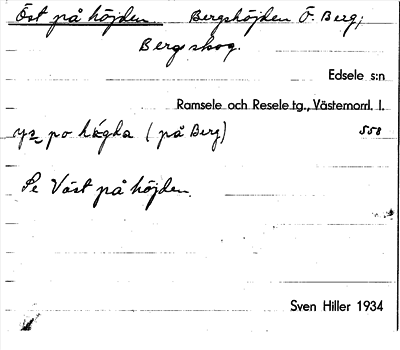 Öst på höjden. Bergshöjden Ö. Berg;
Bergskog.
Edsele s:n
Ramsele och Resele tg., Västernorrl. l.
po högda (på Berg) 558
Se Väst på höjden.
Sven Hiller 1934